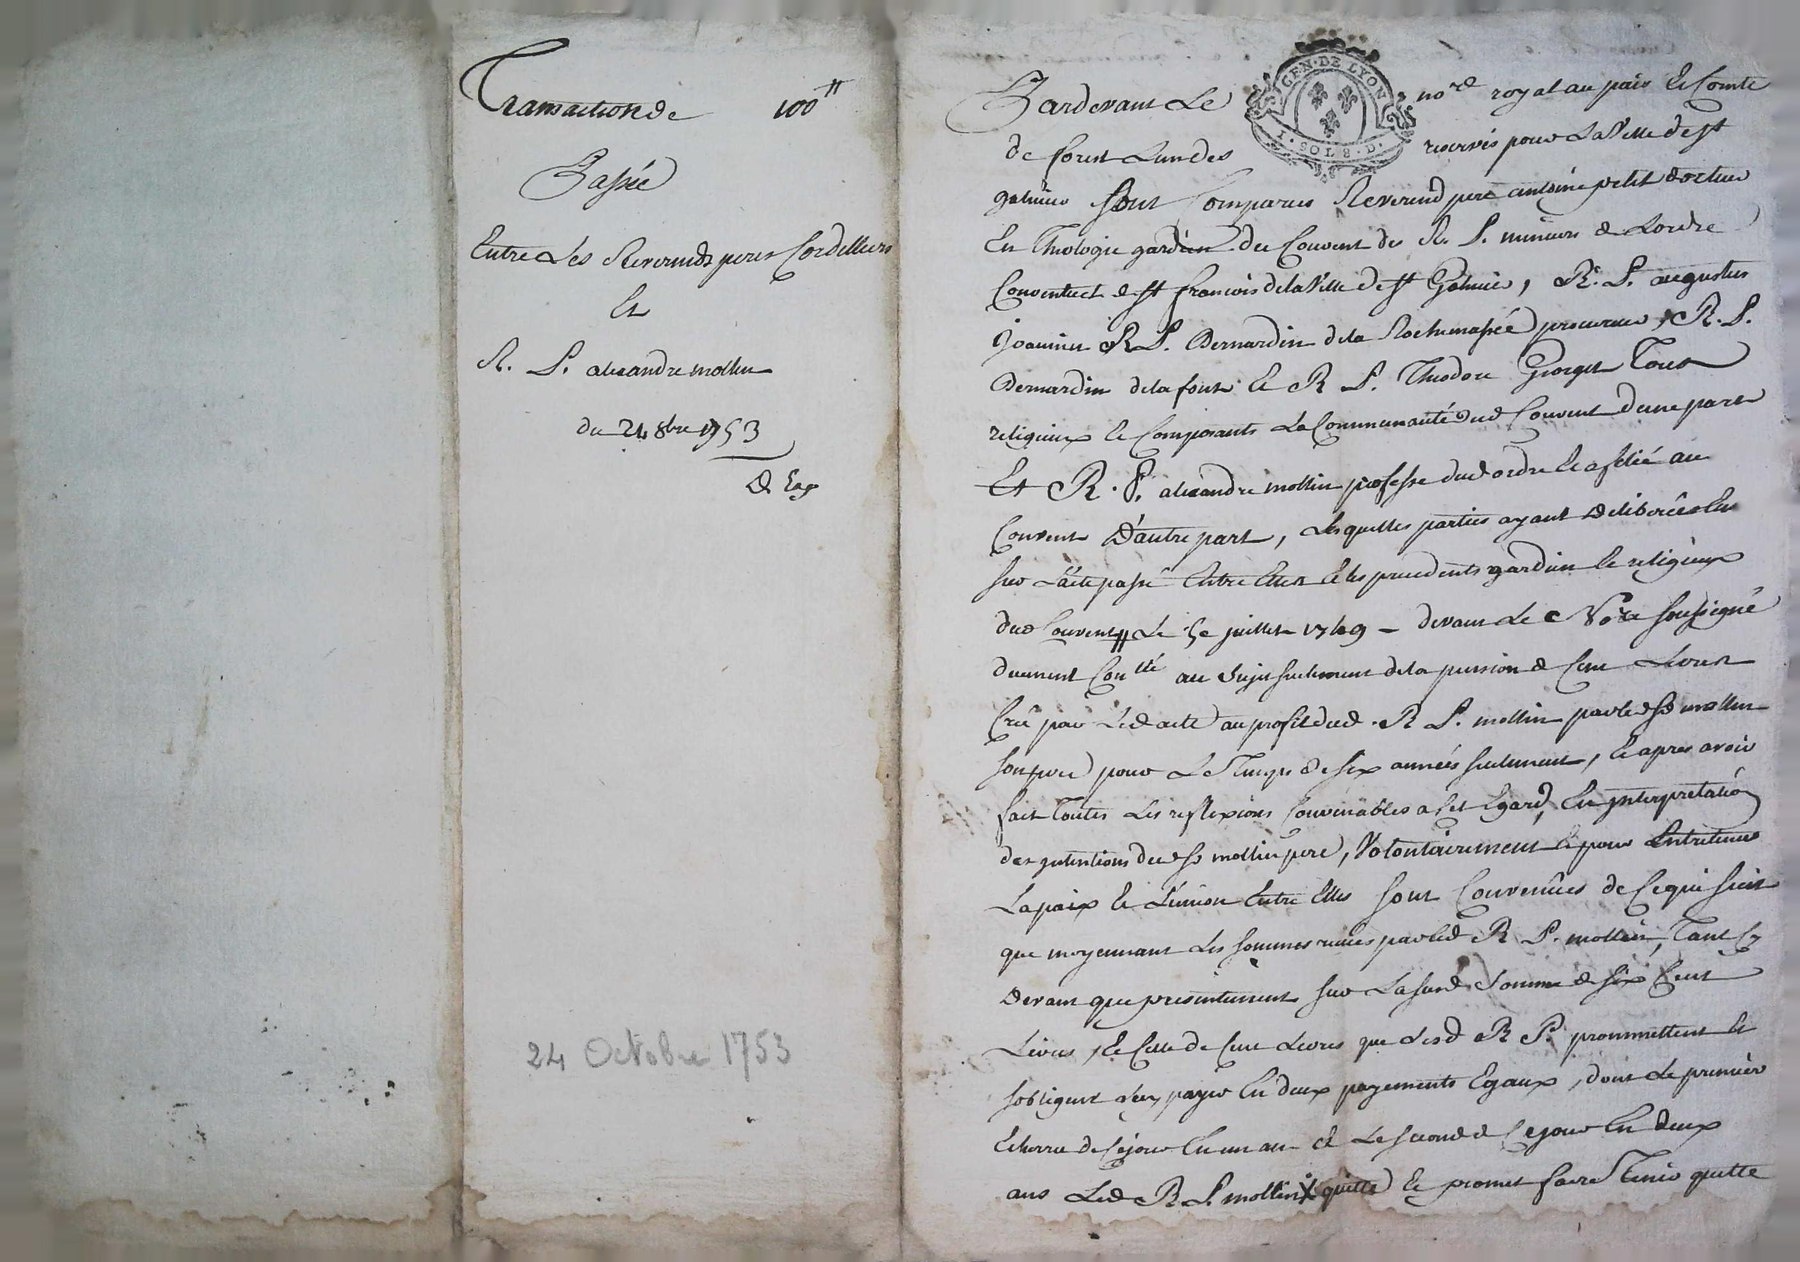 Transaction de 100tt
Passée
Entre Les Reverends peres Cordelliers
Et
R. P. alexandre mollin
du 24 8bre 1753
24 Octobre 1753
GEN. DE LYON
1. SOL 8. D.
Pardevant Le nore royal au païs Et Comté
de forest Lun des reservés pour La Ville de st
galmier sont Comparus Reverend pere antoine petit docteur
En Theologie gardien du Couvent des R. P. mineurs de Lordre
Conventuel de st francois de la Ville de st Galmier, R. P. augustin
Joannin R P. Bernardin de la Rochemassée procureur, R. P.
Bernardin dela font Et R P. Theodore Georget Tous
religieux Et Composants La Communauté dud Couvent dune part
Et R. P. alexandre mollin professe dud ordre Et afilié au
Couvent D'autre part, Lesquelles parties ayant deliberées En
sur L'acte passé Entre Elles Et les precedents gardien Et religieux
dud Couvent Le 5e juillet 1749 - devant Le Nore soussigné
duement Conllé au sujet seulement dela pension de Cent Livres
Créé par Led acte au profit dud. R P. mollin par led sr mollin
son pere pour Le Temps de six années seulement, Et apres avoir
fait Toutes Les reflexions Convenables a Cet Egard, En jnterpretation
des jntentions dud sr mollin pere, Volontairement Et pour Entretenir
La paix Et L'union Entre Elles sont Convenües de Ce qui suit
que moyennant Les sommes reçues par led R P. mollin, Tant Cy
devant que presentement sur La susd Somme de six Cent
Livres, Et Celle de Cent Livres que Lesd R P. prommettent Et
sobligent de luy payer En deux payements Egaux, dont Le premier
Echerra de Cejour En un an Et Le second de Cejour En deux
ans Led R P. mollin quitte Et promet faire Tenir quitte